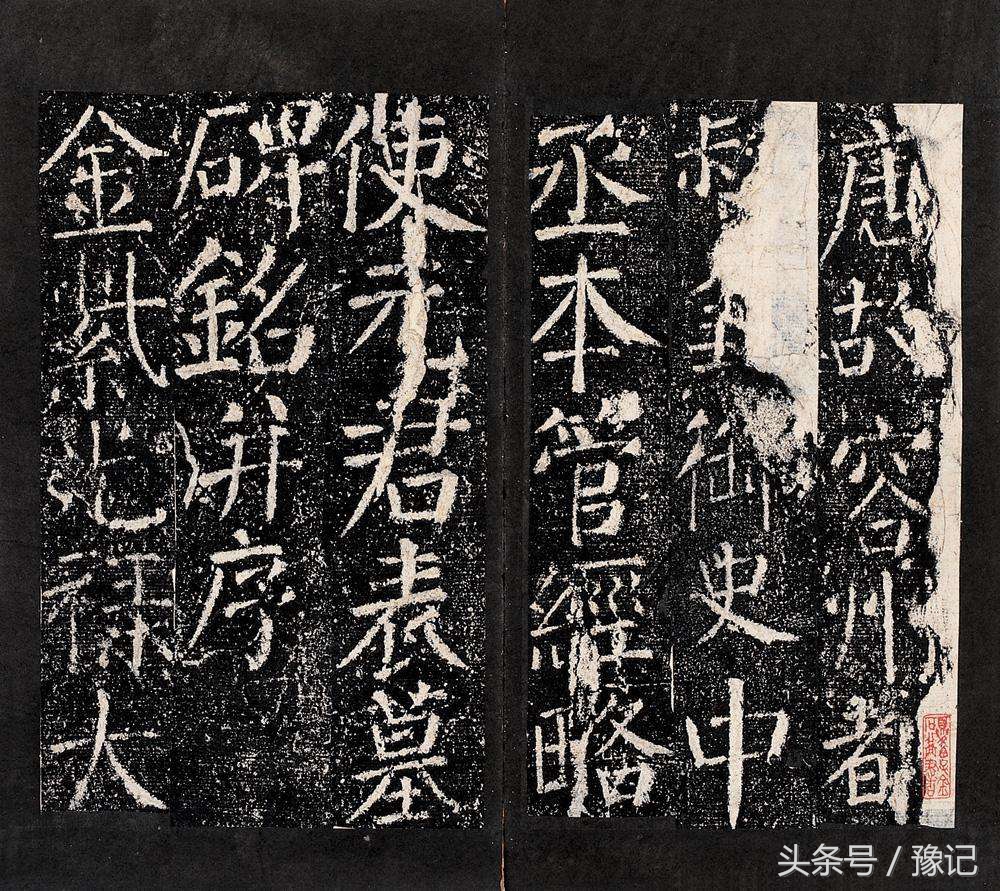 唐故容州都
御史中
丞本管經略
使元君表墓
碑銘并序
金紫光祿大
头条号 / 豫记